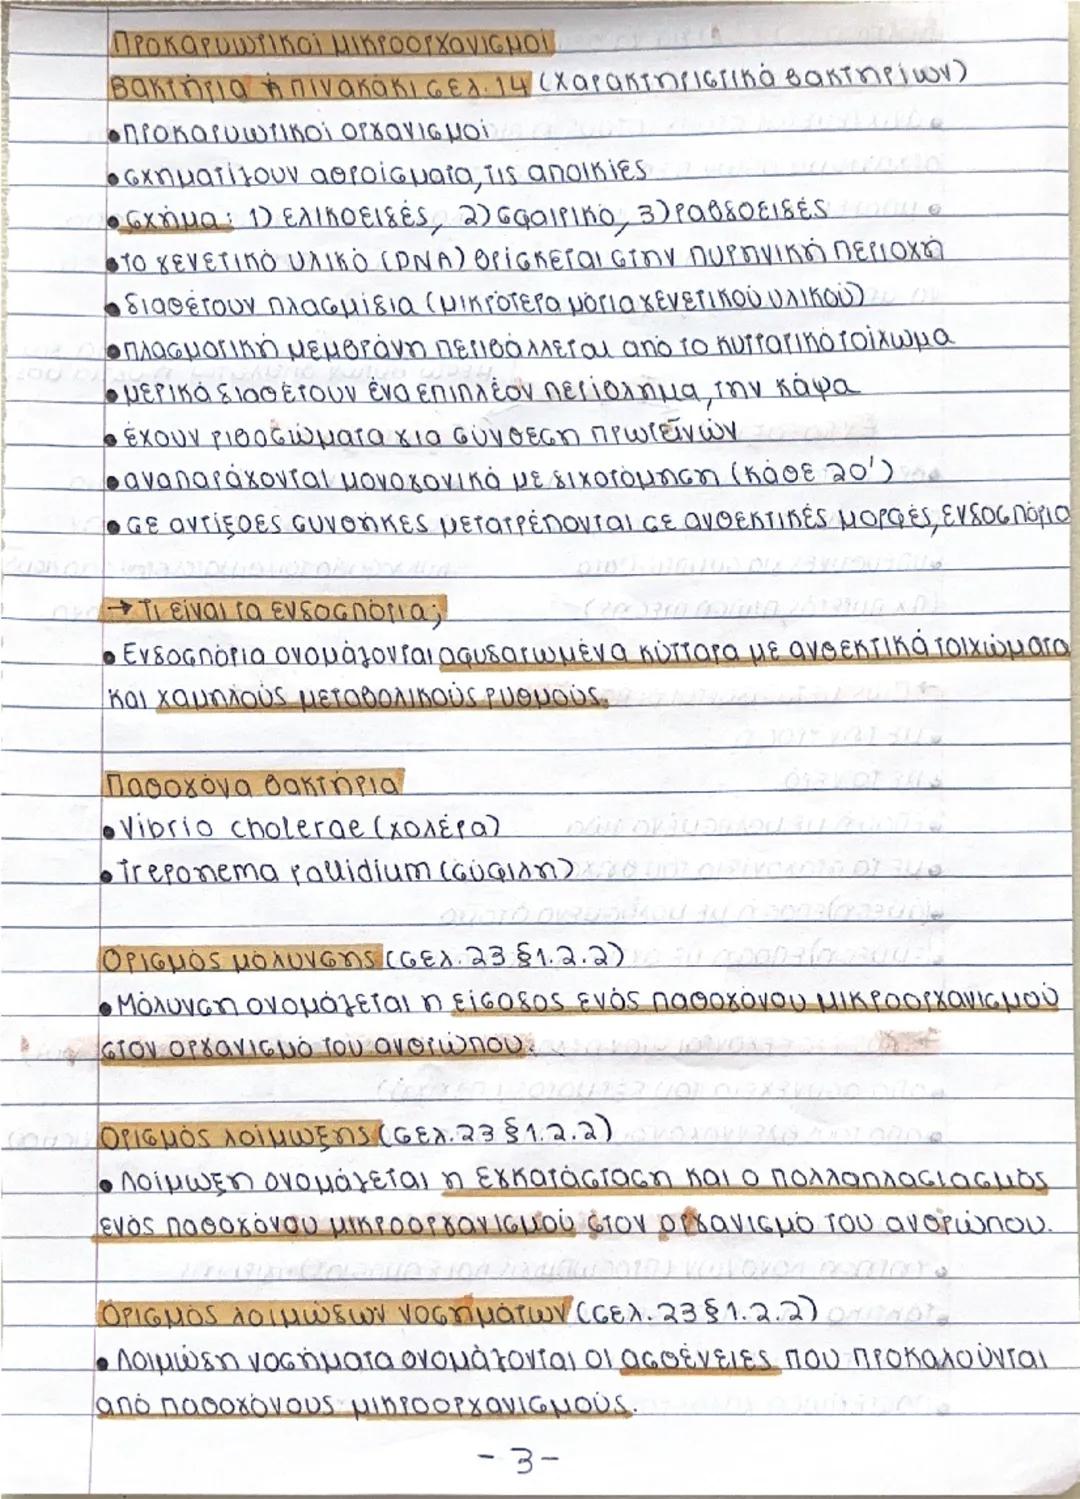 Προκαρυωτικοί μικροοργανισμοί
Βακτήρια ή πινακάκι σελ. 14 (χαρακτηριστικά βακτηρίων)
• προκαρυωτικοί οργανισμοί
• σχηματίζουν αθροίσματα, τις αποικίες
• σχήμα: 1) ελικοειδές, 2) σφαιρικό, 3) ραβδοειδές
• το γενετικό υλικό (DNA) βρίσκεται στην πυρηνική περιοχή
• διαθέτουν πλασμίδια (μικρότερα μόρια γενετικού υλικού)
• πλασματική μεμβράνη περιβάλλεται από το κυτταρικό τοίχωμα
• μερικά διαθέτουν ένα επιπλέον περίβλημα, την κάψα
• έχουν ριβοσώματα για σύνθεση πρωτεϊνών
• αναπαράγονται μονογονικά με διχοτόμηση (κάθε 20')
• σε αντίξοες συνθήκες μετατρέπονται σε ανθεκτικές μορφές, ενδοσπόρια
→ Τι είναι τα ενδοσπόρια;
• Ενδοσπόρια ονομάζονται αφυδατωμένα κύτταρα με ανθεκτικά τοιχώματα
και χαμηλούς μεταβολικούς ρυθμούς.
Παθογόνα βακτήρια
• Vibrio cholerae (χολέρα)
• Treponema pallidium (σύφιλη)
Ορισμός μόλυνσης (σελ. 23 §1.2.2)
• Μόλυνση ονομάζεται η είσοδος ενός παθογόνου μικροοργανισμού
στον οργανισμό του ανθρώπου.
Ορισμός λοίμωξης (σελ. 23 §1.2.2)
• Λοίμωξη ονομάζεται η εγκατάσταση και ο πολλαπλασιασμός
ενός παθογόνου μικροοργανισμού στον οργανισμό του ανθρώπου.
Ορισμός λοιμωδών νοσημάτων (σελ. 23 §1.2.2)
• Λοιμώδη νοσήματα ονομάζονται οι ασθένειες που προκαλούνται
από παθογόνους μικροοργανισμούς.
- 3 -